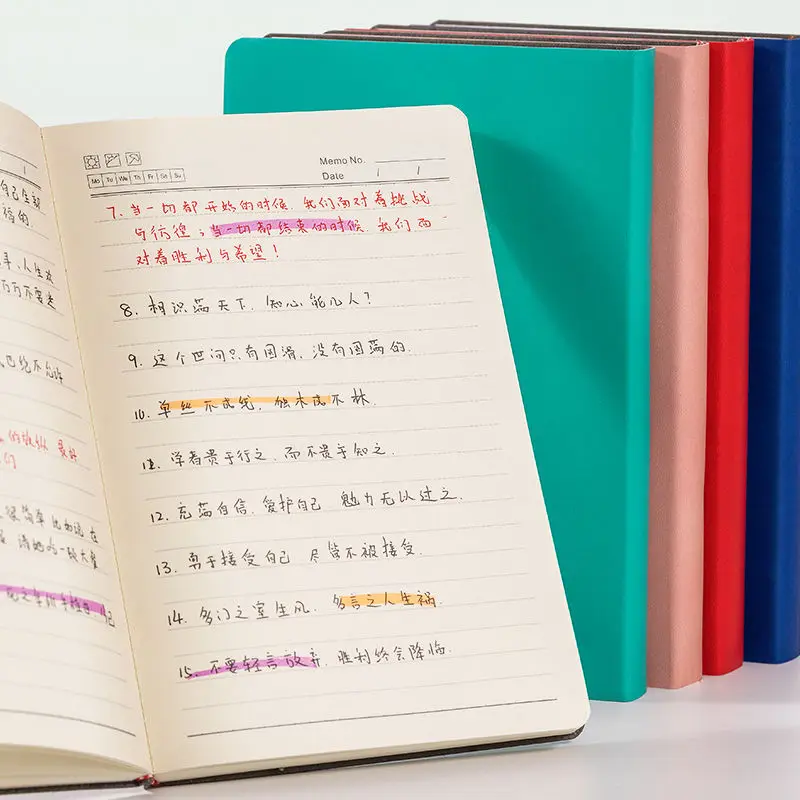 自己生
福的.
万万不要
绝不允许
的放纵 最好
们
很简单 比如说 在
请她吃一顿大餐
Memo No.
Mo Tu We Th Fr Sa Su
Date / /
7. 当一切都开始的时候 我们面对着挑战
与彷徨;当一切都结束的时候 我们面
对着胜利与希望!
8. 相识满天下, 知心能几人?
9. 这个世间只有圆滑, 没有圆满的.
10. 单丝不成线, 独木成不林.
11. 学者贵于行之, 而不贵于知之.
12. 充满自信, 爱护自己 魅力无以过之.
13. 勇于接受自己 尽管不被接受.
14. 多门之室生风, 多言之人生祸.
15. 不要轻言放弃, 胜利终会降临.